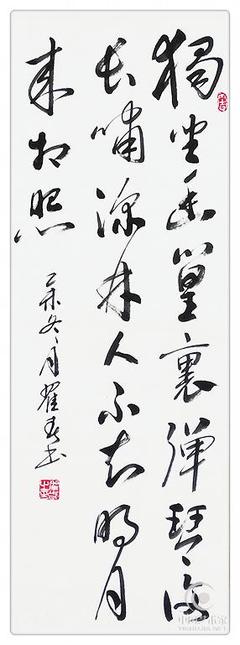 獨坐幽篁裏彈琴復
長嘯深林人不知明月
來相照
冬月翟書